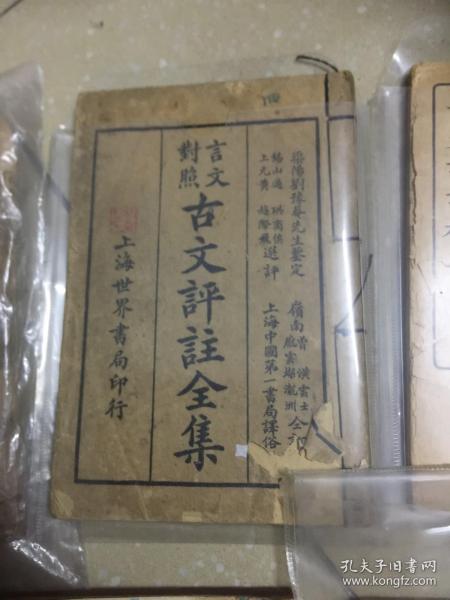 四
梁陽劉豫菴先生鑒定
錫山過珙商侯
上元黃越際飛
選評
嶺南
雲士
上海中國第一書局譯俗
言文
對照
古文評註全集
上海世界書局印行
孔夫子旧书网
www.kongfz.com